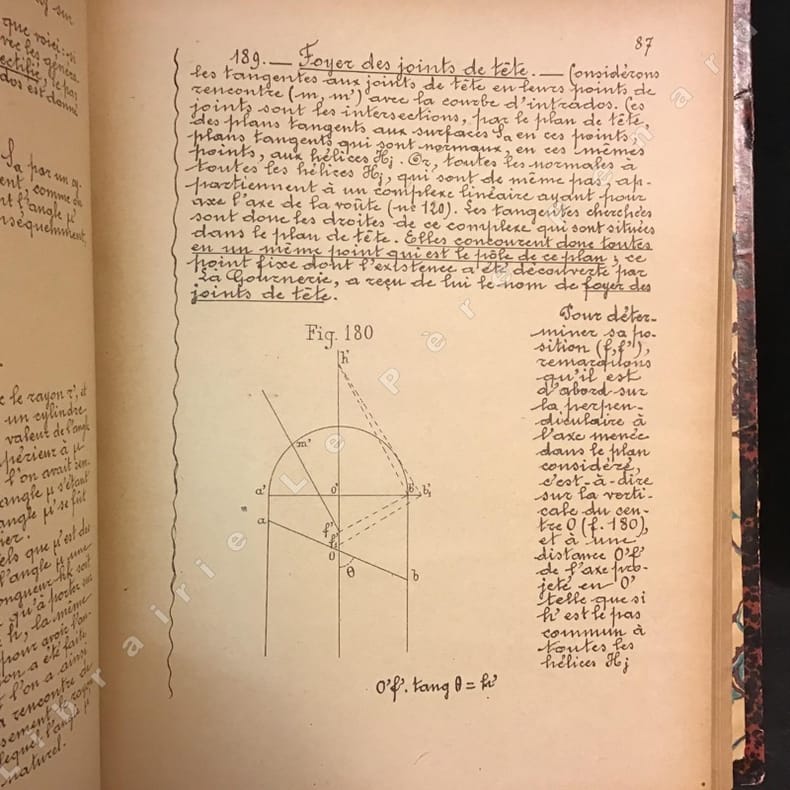 87
189. — Foyer des joints de tête. — Considérons
les tangentes aux joints de tête en leurs points de
rencontre (m, m') avec la courbe d'intrados. Ces
joints sont les intersections, par le plan de tête,
des plans tangents aux surfaces Sa en ces points,
plans tangents qui sont normaux, en ces mêmes
points, aux hélices Hj. Or, toutes les normales à
toutes les hélices Hj, qui sont de même pas, ap-
partiennent à un complexe linéaire ayant pour
axe l'axe de la voûte (nº 120). Les tangentes cherchées
sont donc les droites de ce complexe qui sont situées
dans le plan de tête. Elles concourent donc toutes
en un même point qui est le pôle de ce plan; ce
point fixe dont l'existence a été découverte par
La Gournerie, a reçu de lui le nom de foyer des
joints de tête.
Pour déter-
miner sa po-
sition (f, f'),
remarquons
qu'il est
d'abord sur
la perpen-
diculaire à
l'axe menée
dans le plan
considéré,
c'est-à-dire
sur la verti-
cale du cen-
tre O (f. 180),
et à une
distance O'f'
de l'axe pro-
jeté en O'
telle que si
h' est le pas
commun à
toutes les
hélices Hj
Fig. 180
h'
m'
a'
o'
b'
b'₁
a
f'
f'₁
O
θ
b
O'f'. tang θ = h'
que voici: si
avec les génera-
rectifié, le pas
dos est donné
Sa par un cy-
ent, comme du
nt l'angle μ'
nséquemment,
c le rayon r', et
un cylindre
valeur de l'angle
périeur à μ
l'on avait
angle μ s'étant
angle μ' se fût
ier.
els que μ' est des
l'angle μ une
longueur hk soit
qu'à porter sur
h, la même
pour avoir l'an-
on a été faite
l'on a ainsi
rencontre de
lequel l'angle μ'
naturel.
Librairie Le Père Pénard